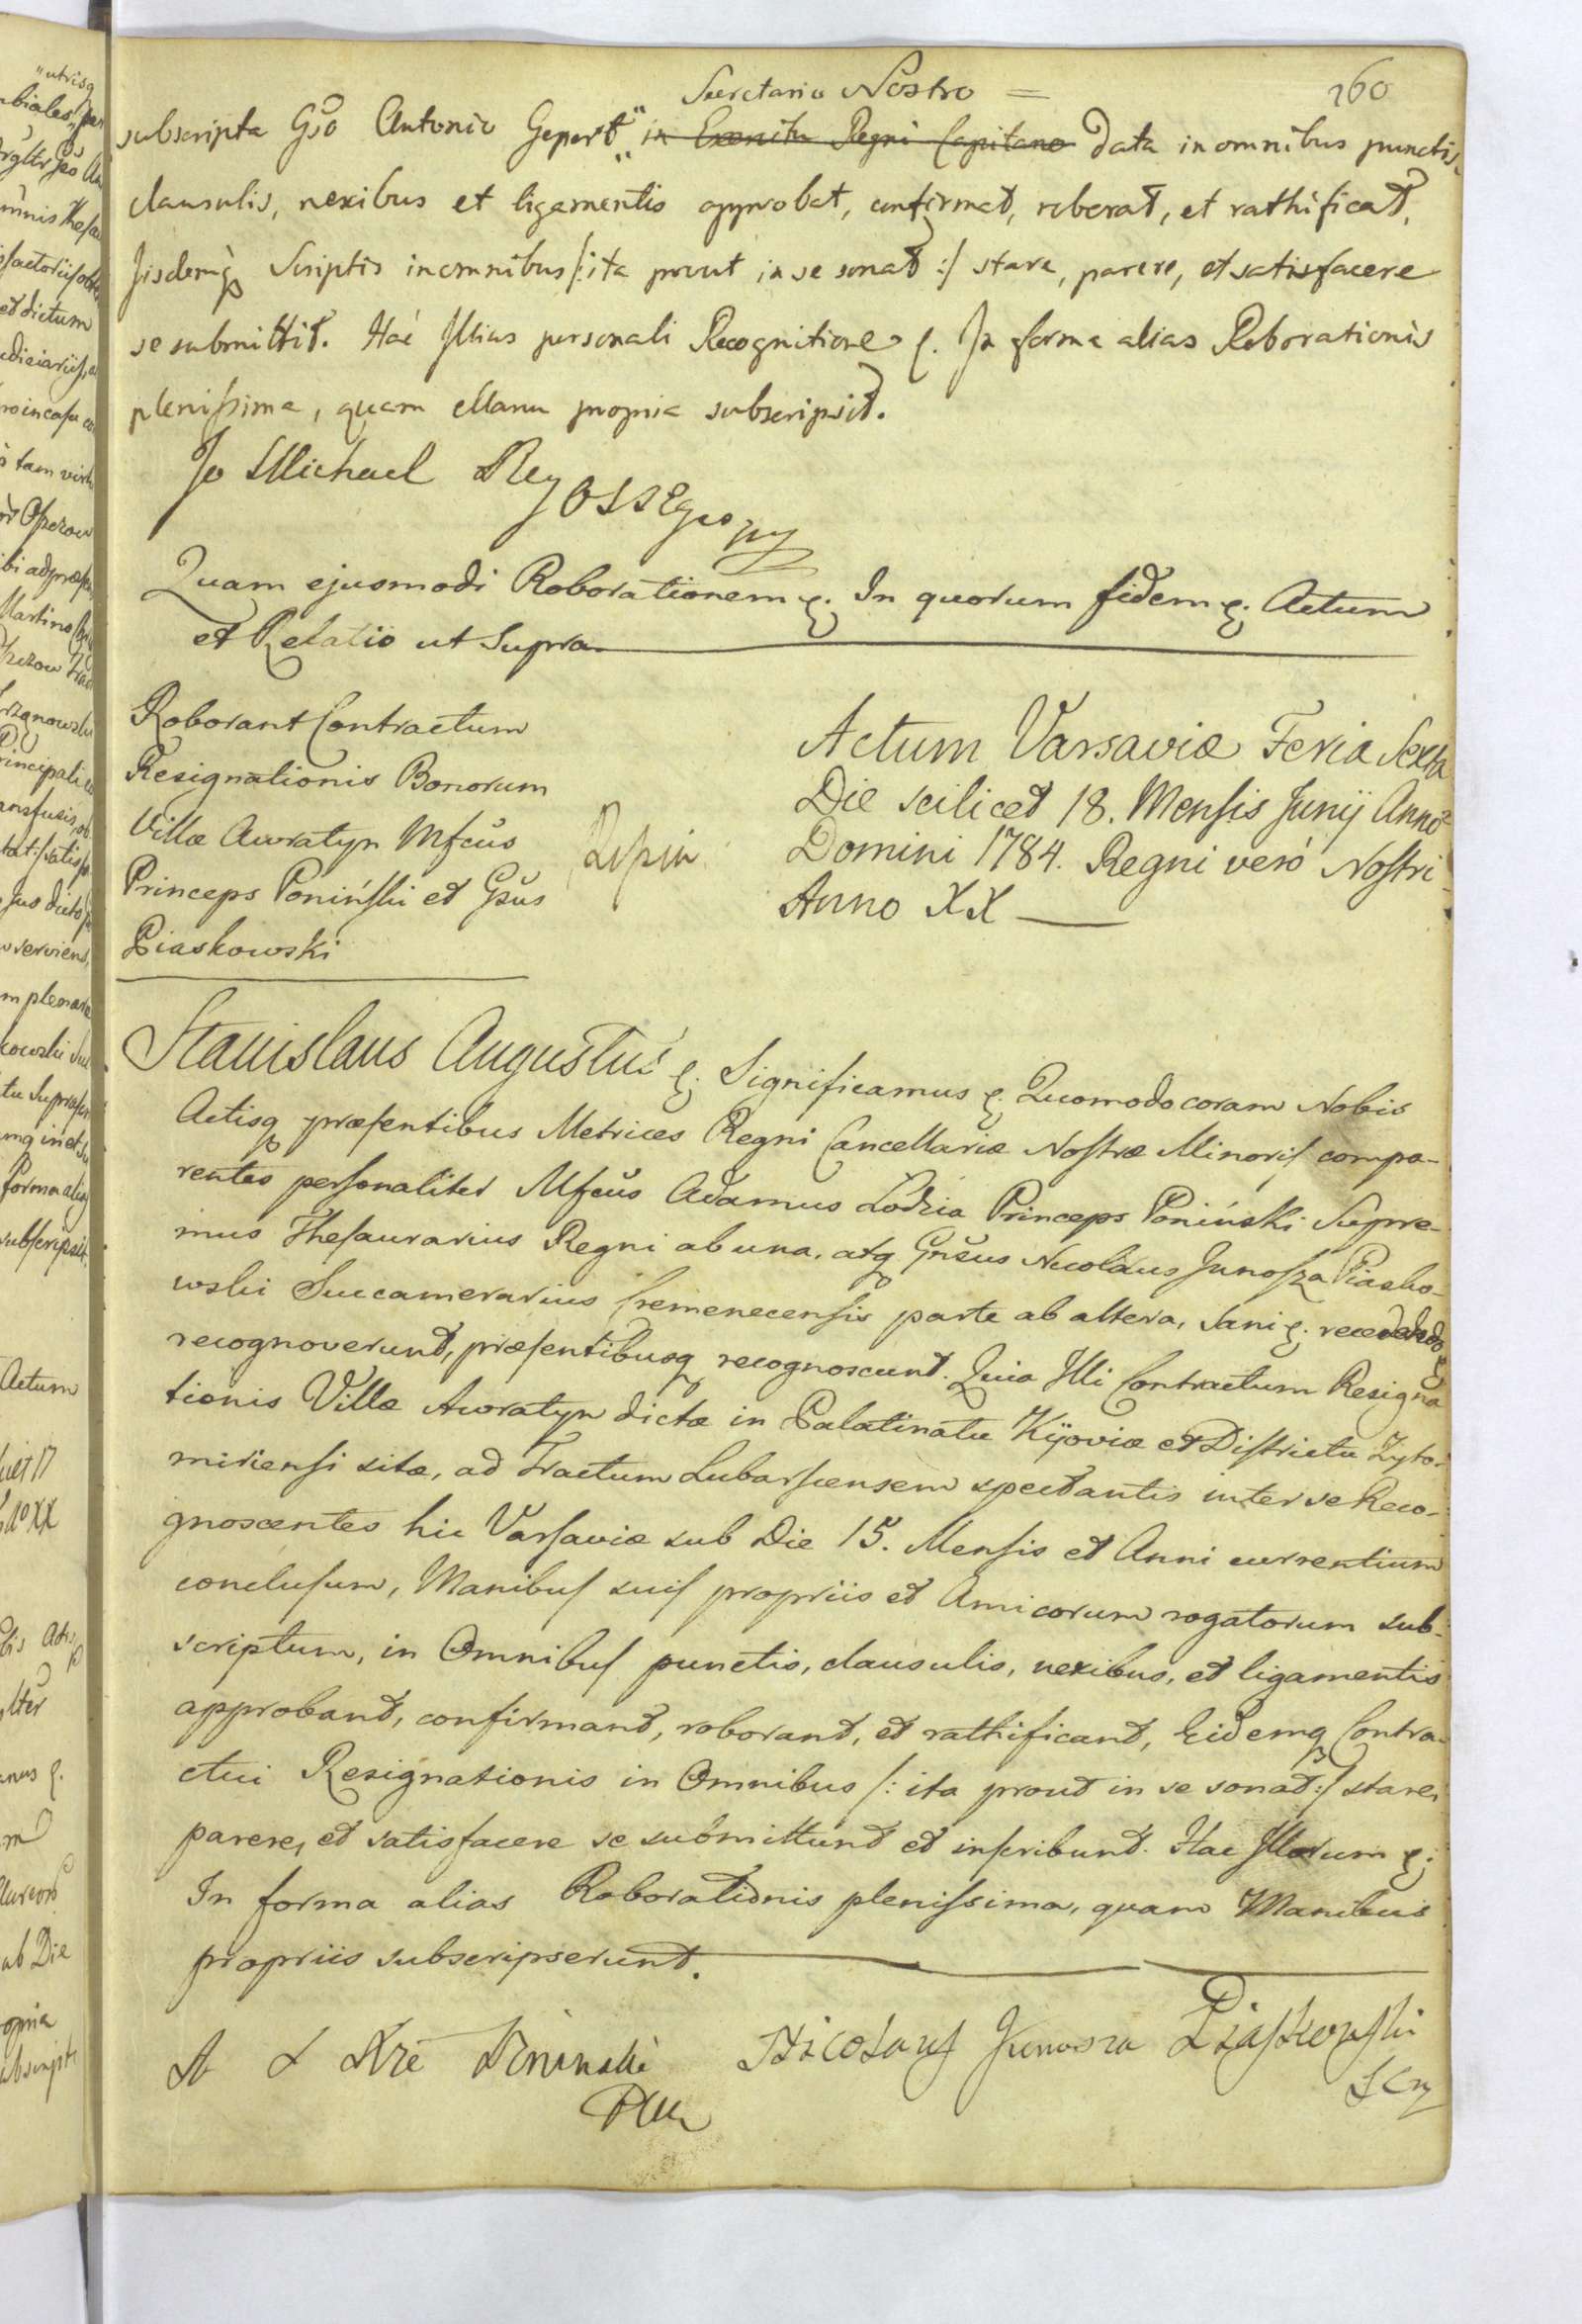 Secretario Nostro =
160
subscripta Gso Antonio Gepert " in Exercitu Regni Capitaneo data in omnibus punctis,
clausulis, nexibus et ligamentis approbat, confirmat, roborat, et rathificat,
Jisdemq Scriptis in omnibus /: ita prout in se sonat :/ stare, parere, et satisfacere
se submittit. Hac Illius personali Recognitione ę. In forma alias Roborationis
plenissima, quam Manu propria subscripsit.
Jo Michael Rey
Quam ejusmodi Roborationem ę. In quorum fidem ę. Actum
et Relatio ut Supra
Roborant Contractum
Resignationis Bonorum
Villæ Aworatyn Mfcus
Princeps Poniński et Gsus
Piaskowski
Actum Varsaviæ Feria Sexta
Die scilicet 18. Mensis Junij Anno
Domini 1784. Regni vero Nostri
Anno XX
Stanislaus Augustus ę. Significamus ę. Quomodo coram Nobis
Actisq præsentibus Metrices Regni Cancellariæ Nostræ Minoris compa-
rentes personaliter Mfcus Adamus Lodzia Princeps Poniński Supre-
mus Thesaurarius Regni ab una, atq Gnsus Nicolaus Junosza Piasko-
wski Succamerarius Cremenecensis parte ab altera, Sani ę. recedendo ę
recognoverunt, præsentibusq recognoscunt. Quia Illi Contractum Resigna
tionis Villæ Aworatyn dictæ in Palatinatu Kijoviæ et Districtu Zyto-
miriensi sitæ, ad Tractum Lubarscensem spectantis inter se Reco-
gnoscentes hic Varsaviæ sub Die 15. Mensis et Anni currentium
conclusum, Manibus suis propriis et Amicorum rogatorum sub-
scriptum, in Omnibus punctis, clausulis, nexibus, et ligamentis
approbant, confirmant, roborant, et rathificant, Eidemq Contra-
ctui Resignationis in Omnibus /: ita prout in se sonat :/ stare,
parere, et satisfacere se submittunt et inscribunt. Hac Illorum ę.
In forma alias Roborationis plenissima, quam Manibus
propriis subscripserunt.
Nicolaus Junosza Piaskowski